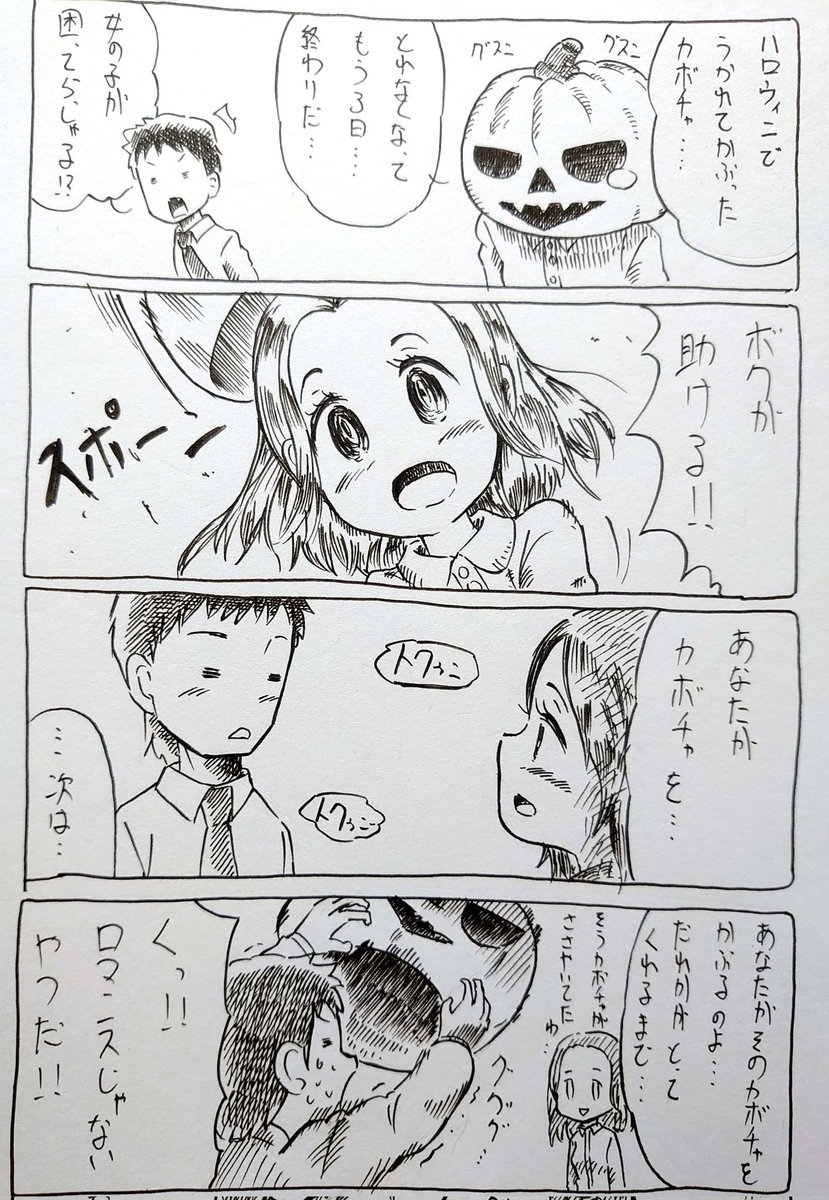 ハロウィンで
うかれてかぶった
カボチャ…
グスン
グスン
とれなくなって
もう3日…
終わりだ…
女の子が
困ってらっしゃる!?
ボクが
助ける!!
スポーン
あなたが
カボチャを…
トクゥン
トクゥン
…次は…
あなたがそのカボチャを
かぶるのよ…
だれかがとって
くれるまで…
そうカボチャが
ささやいてたわ…
ググググ…
くっ!!
ロマンスじゃない
やつだ!!